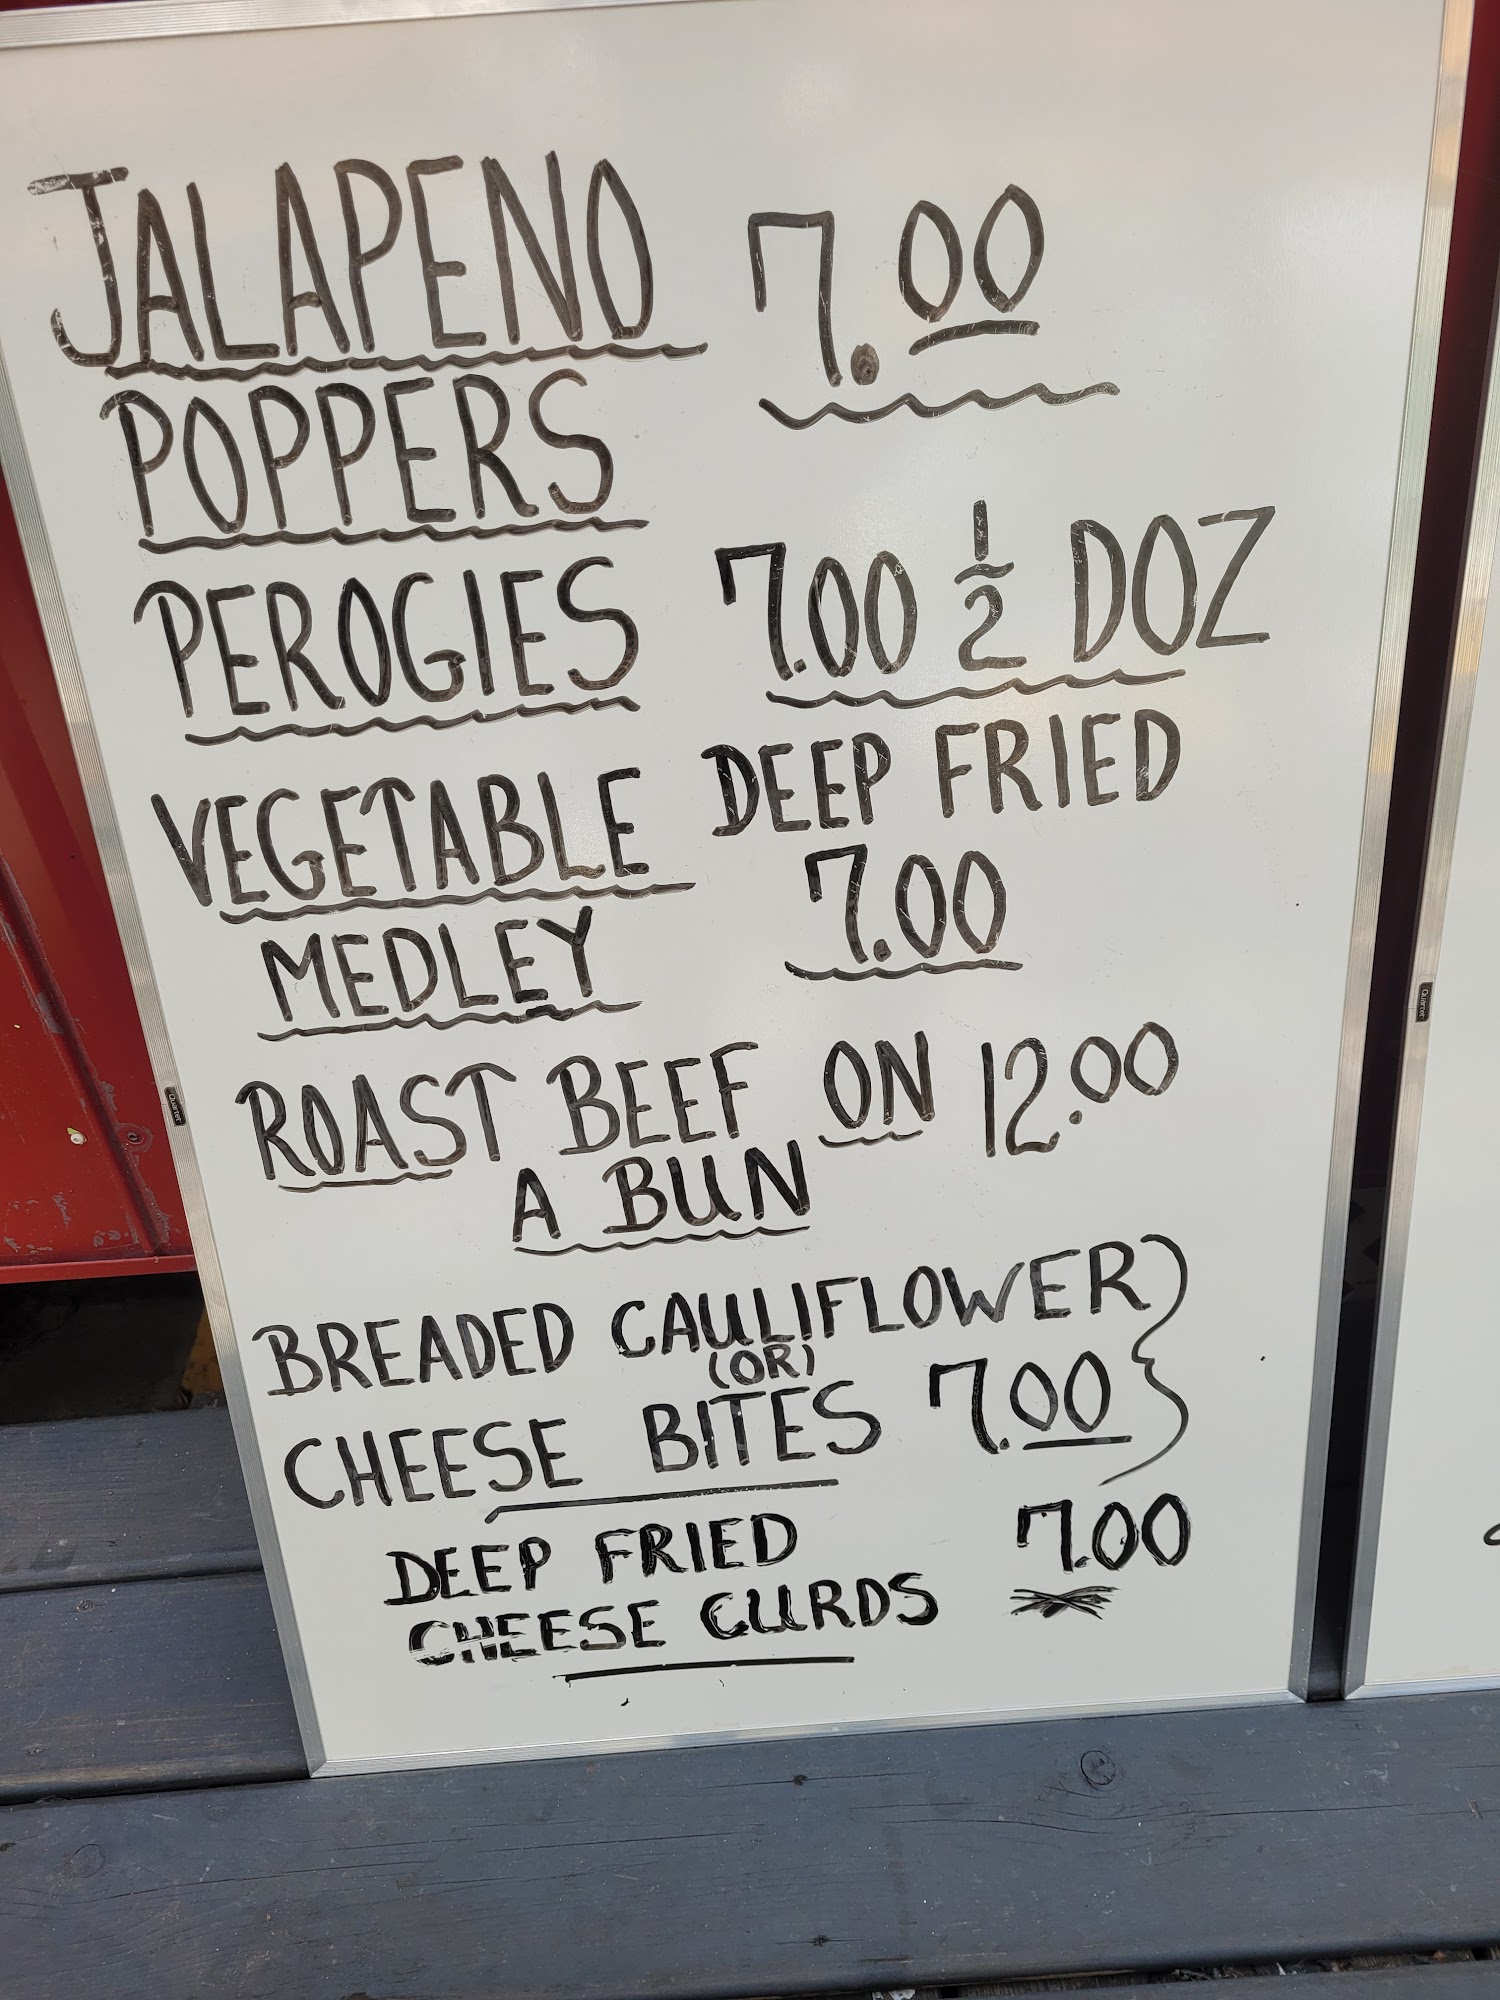 JALAPENO 7.00
POPPERS
PEROGIES 7.00 1/2 DOZ
VEGETABLE DEEP FRIED
MEDLEY 7.00
ROAST BEEF ON 12.00
A BUN
BREADED CAULIFLOWER
(OR)
CHEESE BITES 7.00
DEEP FRIED 7.00
CHEESE CURDS
Quartet
Quartet